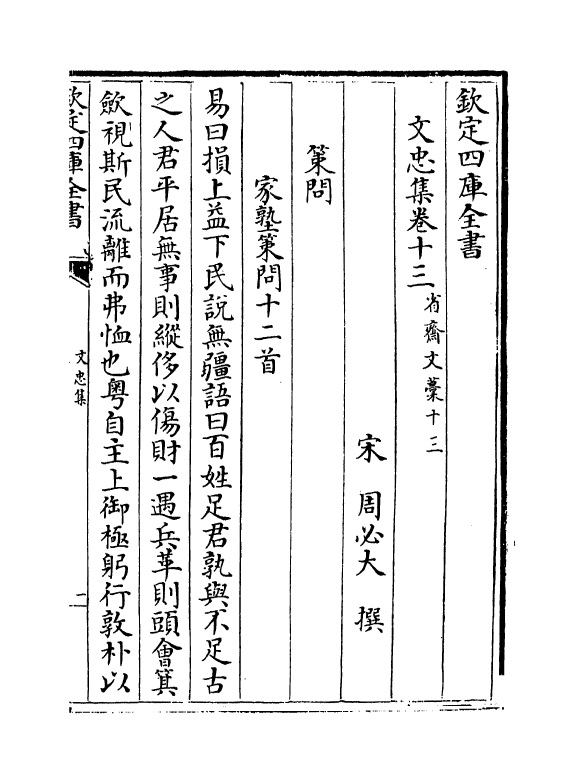 欽定四庫全書
文忠集卷十三 省齋文藁十三
宋 周必大 撰
策問
家塾策問十二首
易曰損上益下民說無疆語曰百姓足君孰與不足古
之人君平居無事則縱侈以傷財一遇兵革則頭會箕
歛視斯民流離而弗恤也粤自主上御極躬行敦朴以
欽定四庫全書
文忠集